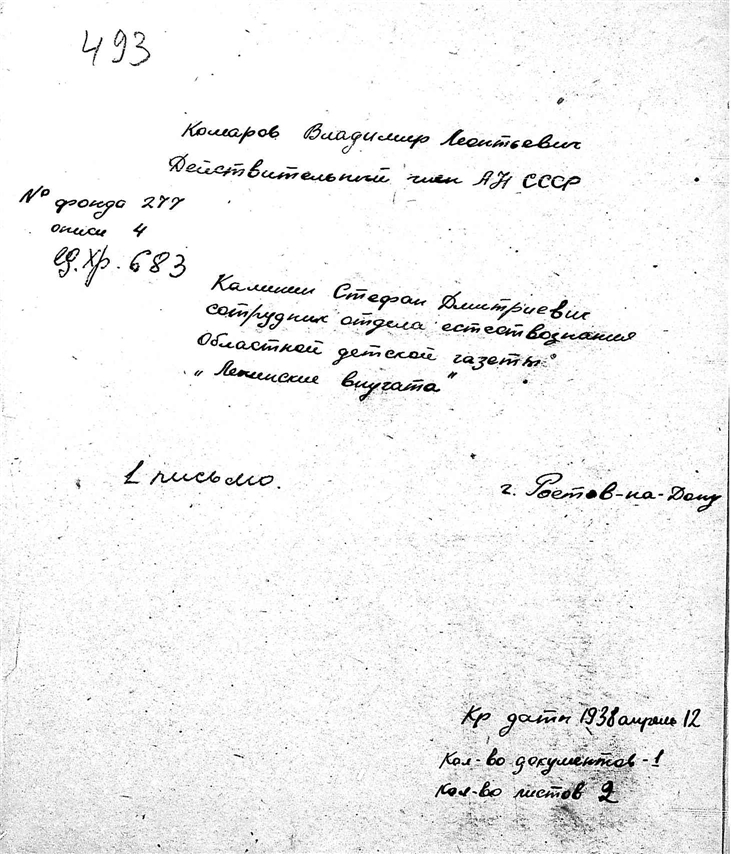 493
Комаров Владимир Леонтьевич
Действительный член АН СССР
№ фонда 277
описи 4
Ед. Хр. 683
Калинин Стефан Дмитриевич
сотрудник отдела естествознания
Областной детской газеты
„Ленинские внучата"
1 письмо.
г. Ростов-на-Дону
Кр даты 1938 апрель 12
Кол-во документов - 1
Кол-во листов 2